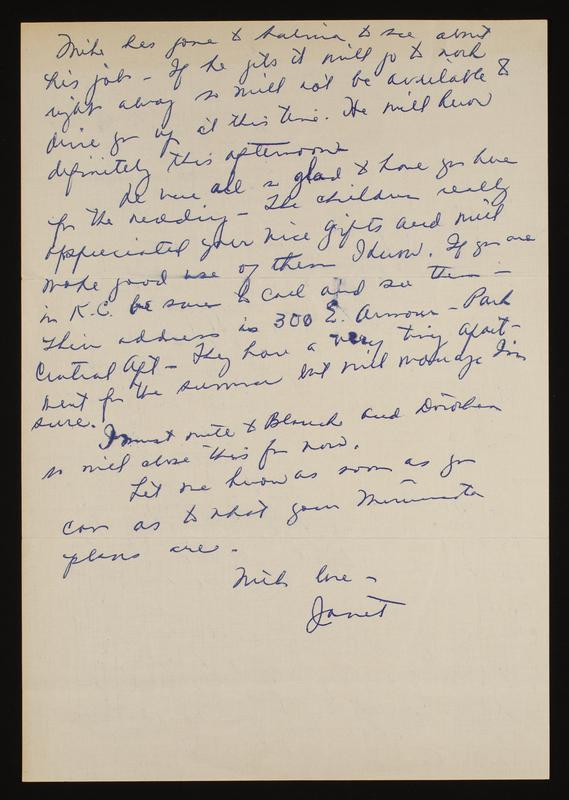 Mike has gone to Salina to see about
his job - If he gets it will go to work
right away so will not be available to
drive you up at this time. He will know
definitely this afternoon
We were all so glad to have you here
for the wedding - The children really
appreciated your nice gifts and will
make good use of them I know. If you are
in K.C. be sure to call and see them -
Their address is 300 E. Armour - Park
Central Apt - They have a very tiny apart-
ment for the summer but will manage I'm
sure.
I must write to Blanche and Dorothea
so will close this for now.
Let me know as soon as you
can as to what your Minnesota
plans are.
With love -
Janet